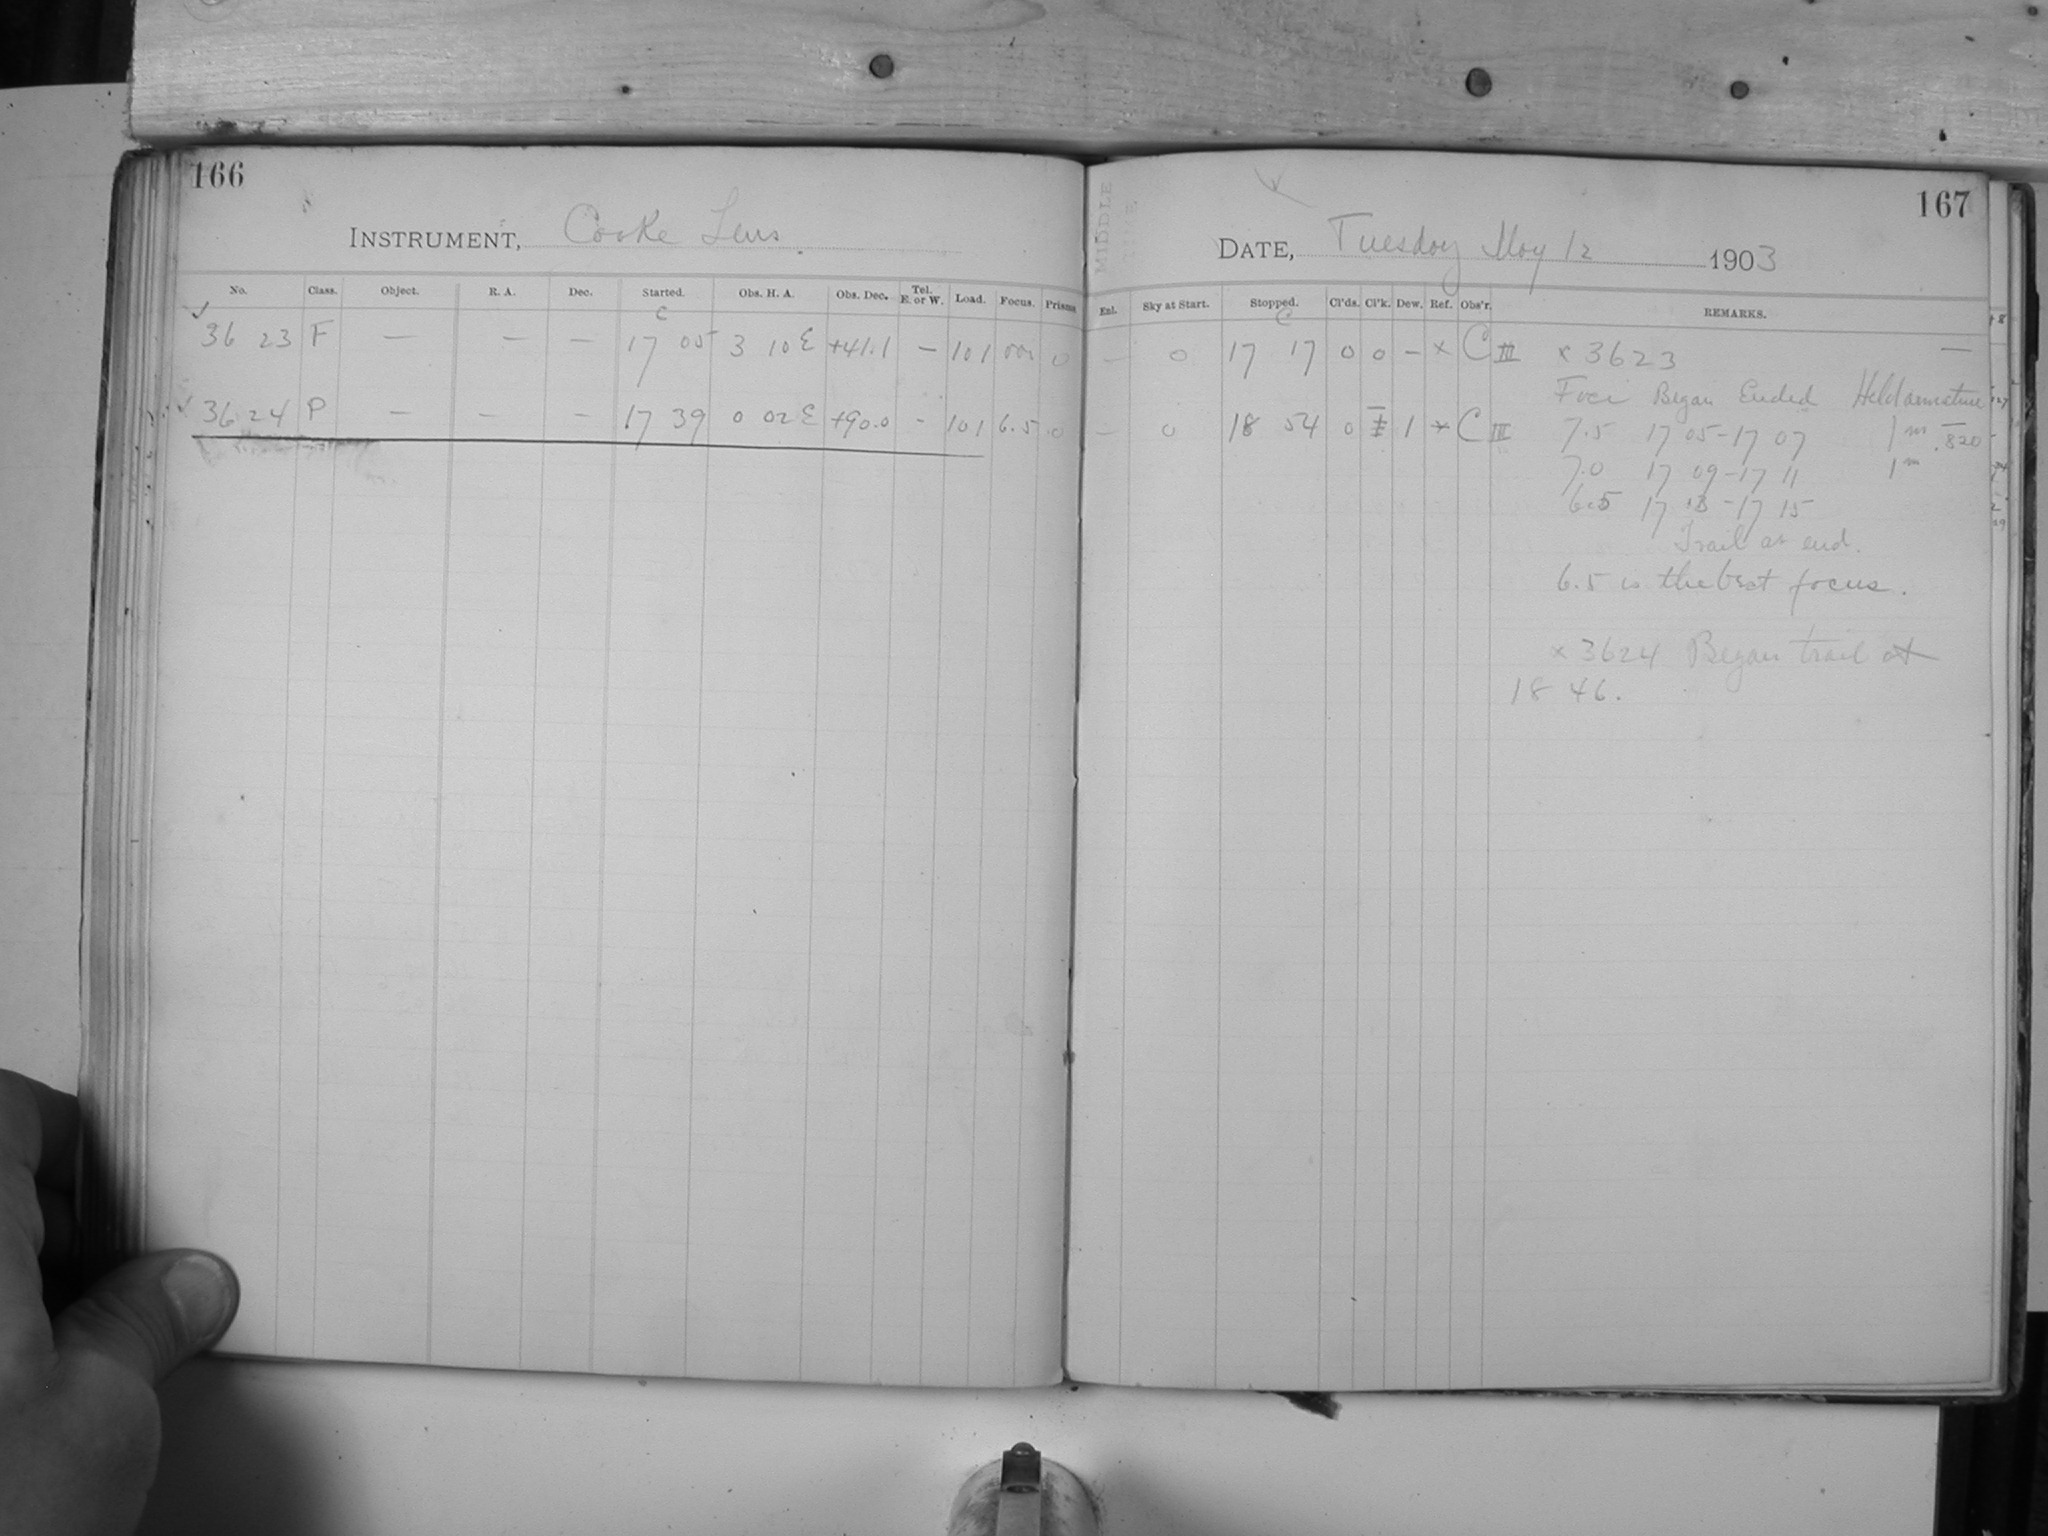 166
INSTRUMENT, Cooke Lens
No. Class. Object. R. A. Dec. Started. Obs. H. A. Obs. Dec. Tel. E. or W. Load. Focus. Prisms
C
36 23 F — — — 17 05 3 10 E +41.1 — 101 0
36 24 P — — — 17 39 0 02 E +90.0 - 101 6.5 0
MIDDLE
167
DATE, Tuesday May 12 1903
Enl. Sky at Start. Stopped. Cl'ds. Cl'k. Dew. Ref. Obs'r. REMARKS.
C
— 0 17 17 0 0 — x C III x 3623 —
Foci Began Ended Held armature
— 0 18 54 0 1 x C III 7.5 17 05-17 07 1 m .820
7.0 17 09-17 11 1 m
6.5 17 13-17 15
Trail at end.
6.5 is the best focus.
x 3624 Began trail at
18 46.